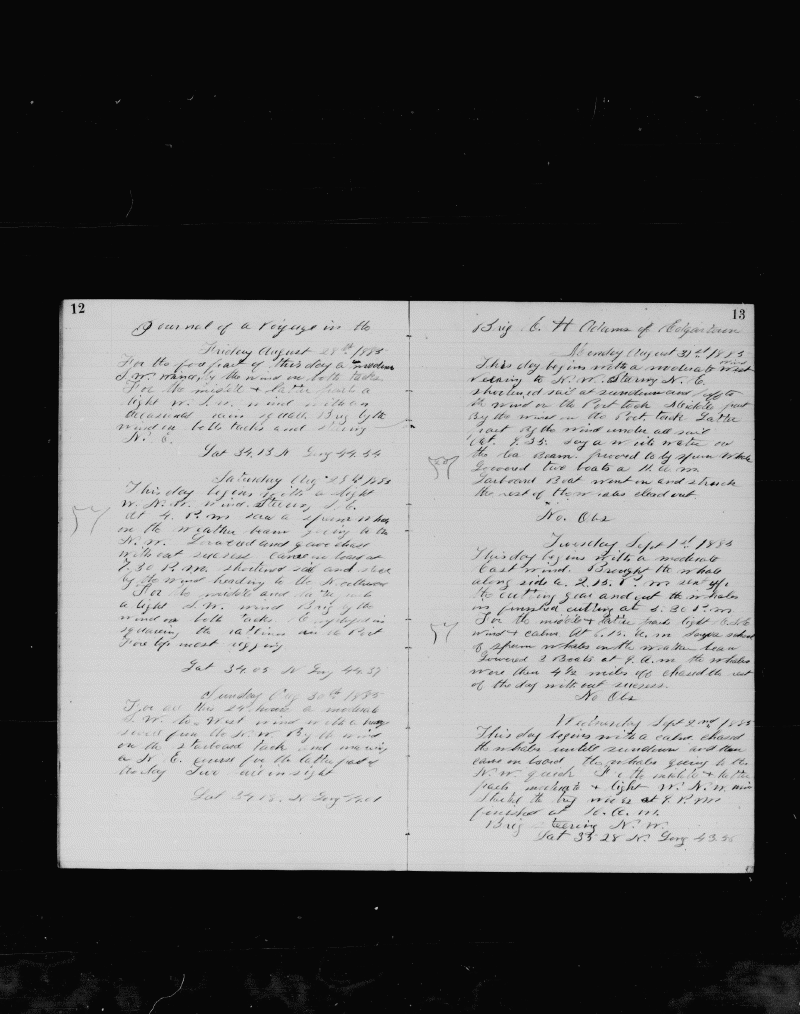 12
Journal of a Voyage in the
Friday August 28th 1885
For the fore part of this day a moderate
S.W. wind, by the wind on both tacks
For the middle & latter parts a
light W.S.W. wind with an
occasional rain squall. Brig by the
wind on both tacks and steering
N. E.
Lat 34.13 N Long 44.54
Saturday Aug 29th 1885
This day begins with a light
W.N.W. wind. Steering S.E.
At 4. P.M saw a sperm whale
on the weather beam going to the
N.W. Lowered and gave chase
without success Came on board at
6,30 P.M. shortened sail and
by the wind heading to the Northward
For the middle and latter parts
a light S.W. wind Brig by the
wind on both tacks employed in
the ratlines on the Port
Fore top mast rigging
Lat 34.03 N Long 44.37
Sunday Aug 30th 1885
For all this 24 hours a moderate
S.W. to West wind with a heavy
swell from the N.W. By the wind
on the starboard tack and making
a N. E. course for the latter part of
the day Two sail in sight
Lat 34.18 N Long 44.01
13
Brig E. H Adams of Edgartown
Monday August 31st 1885
This day begins with a moderate West wind
veering to N.W. Steering N.E.
shortened sail at sundown and
the wind on the Port tack Middle part
By the wind on the Port tack Latter
part by the wind under all sail
At 9.35. saw white water on
the lee Beam. proved to by sperm Whale
Lowered two boats at 11. A.M.
Larboard Boat went on and struck
the rest of the whales cleared out
No. Obs
Tuesday Sept 1st 1885
This day begins with a moderate
East wind. Brought the whale
along side at 2.15. P.M sent up
the cutting gear and cut the whale
in finished cutting at 5.30 P.M
For the middle & latter parts light E.N.E.
wind & calms At 6.15. A.M saw school
of sperm whales on the weather beam
Lowered 3 Boats at 9. a.m the whales
were then 4½ miles off chased the rest
of the day without success.
No Obs
Wednesday Sept 2nd 1885
This day begins with a calm chased
the whales untill sundown and then
came on board, the whales going to the
N.W. quick For the middle & latter
parts moderate & light W.N.W. wind
Started the try works at 8. P.M
finished at 10. A.M.
Brig steering N.W.
Lat 35 28 N. Long 43.56